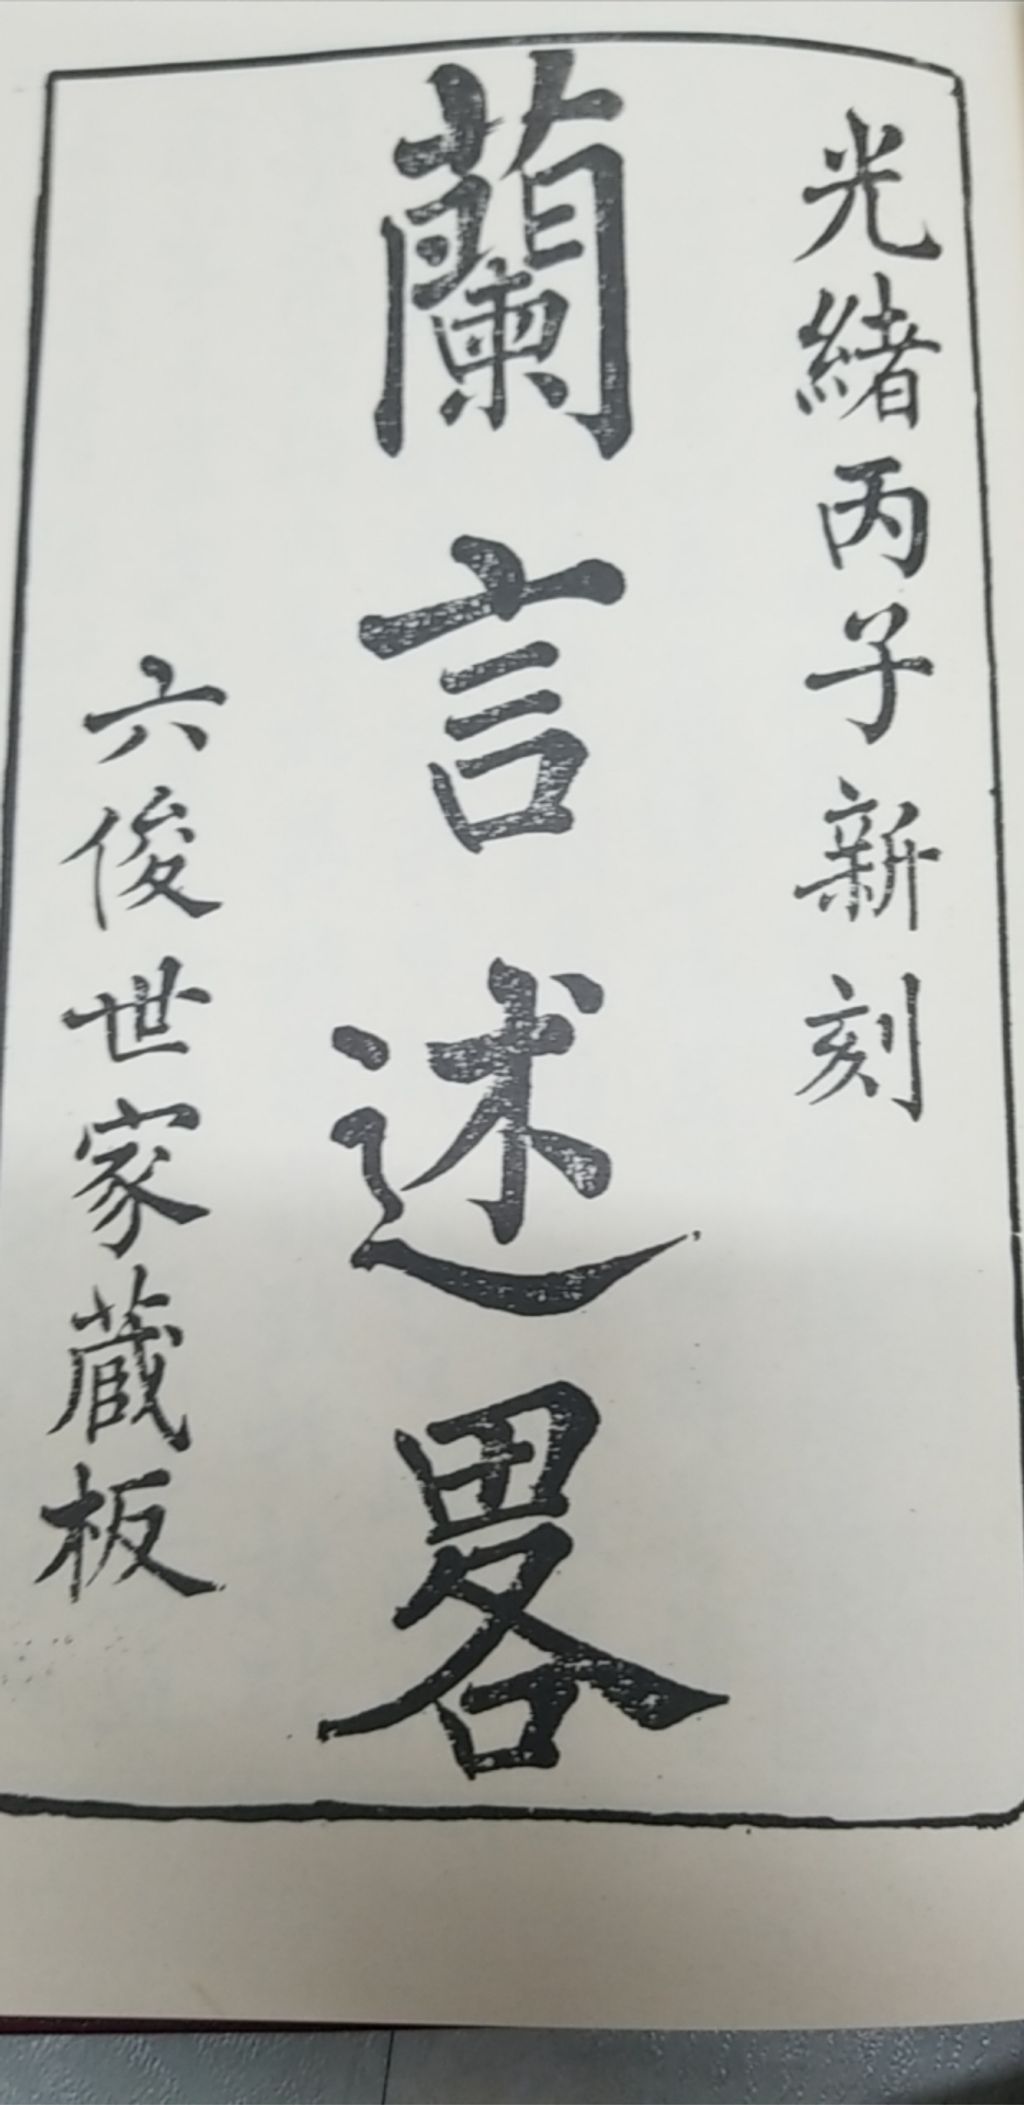 光緒丙子新刻
蘭言述畧
六俊世家蔵板